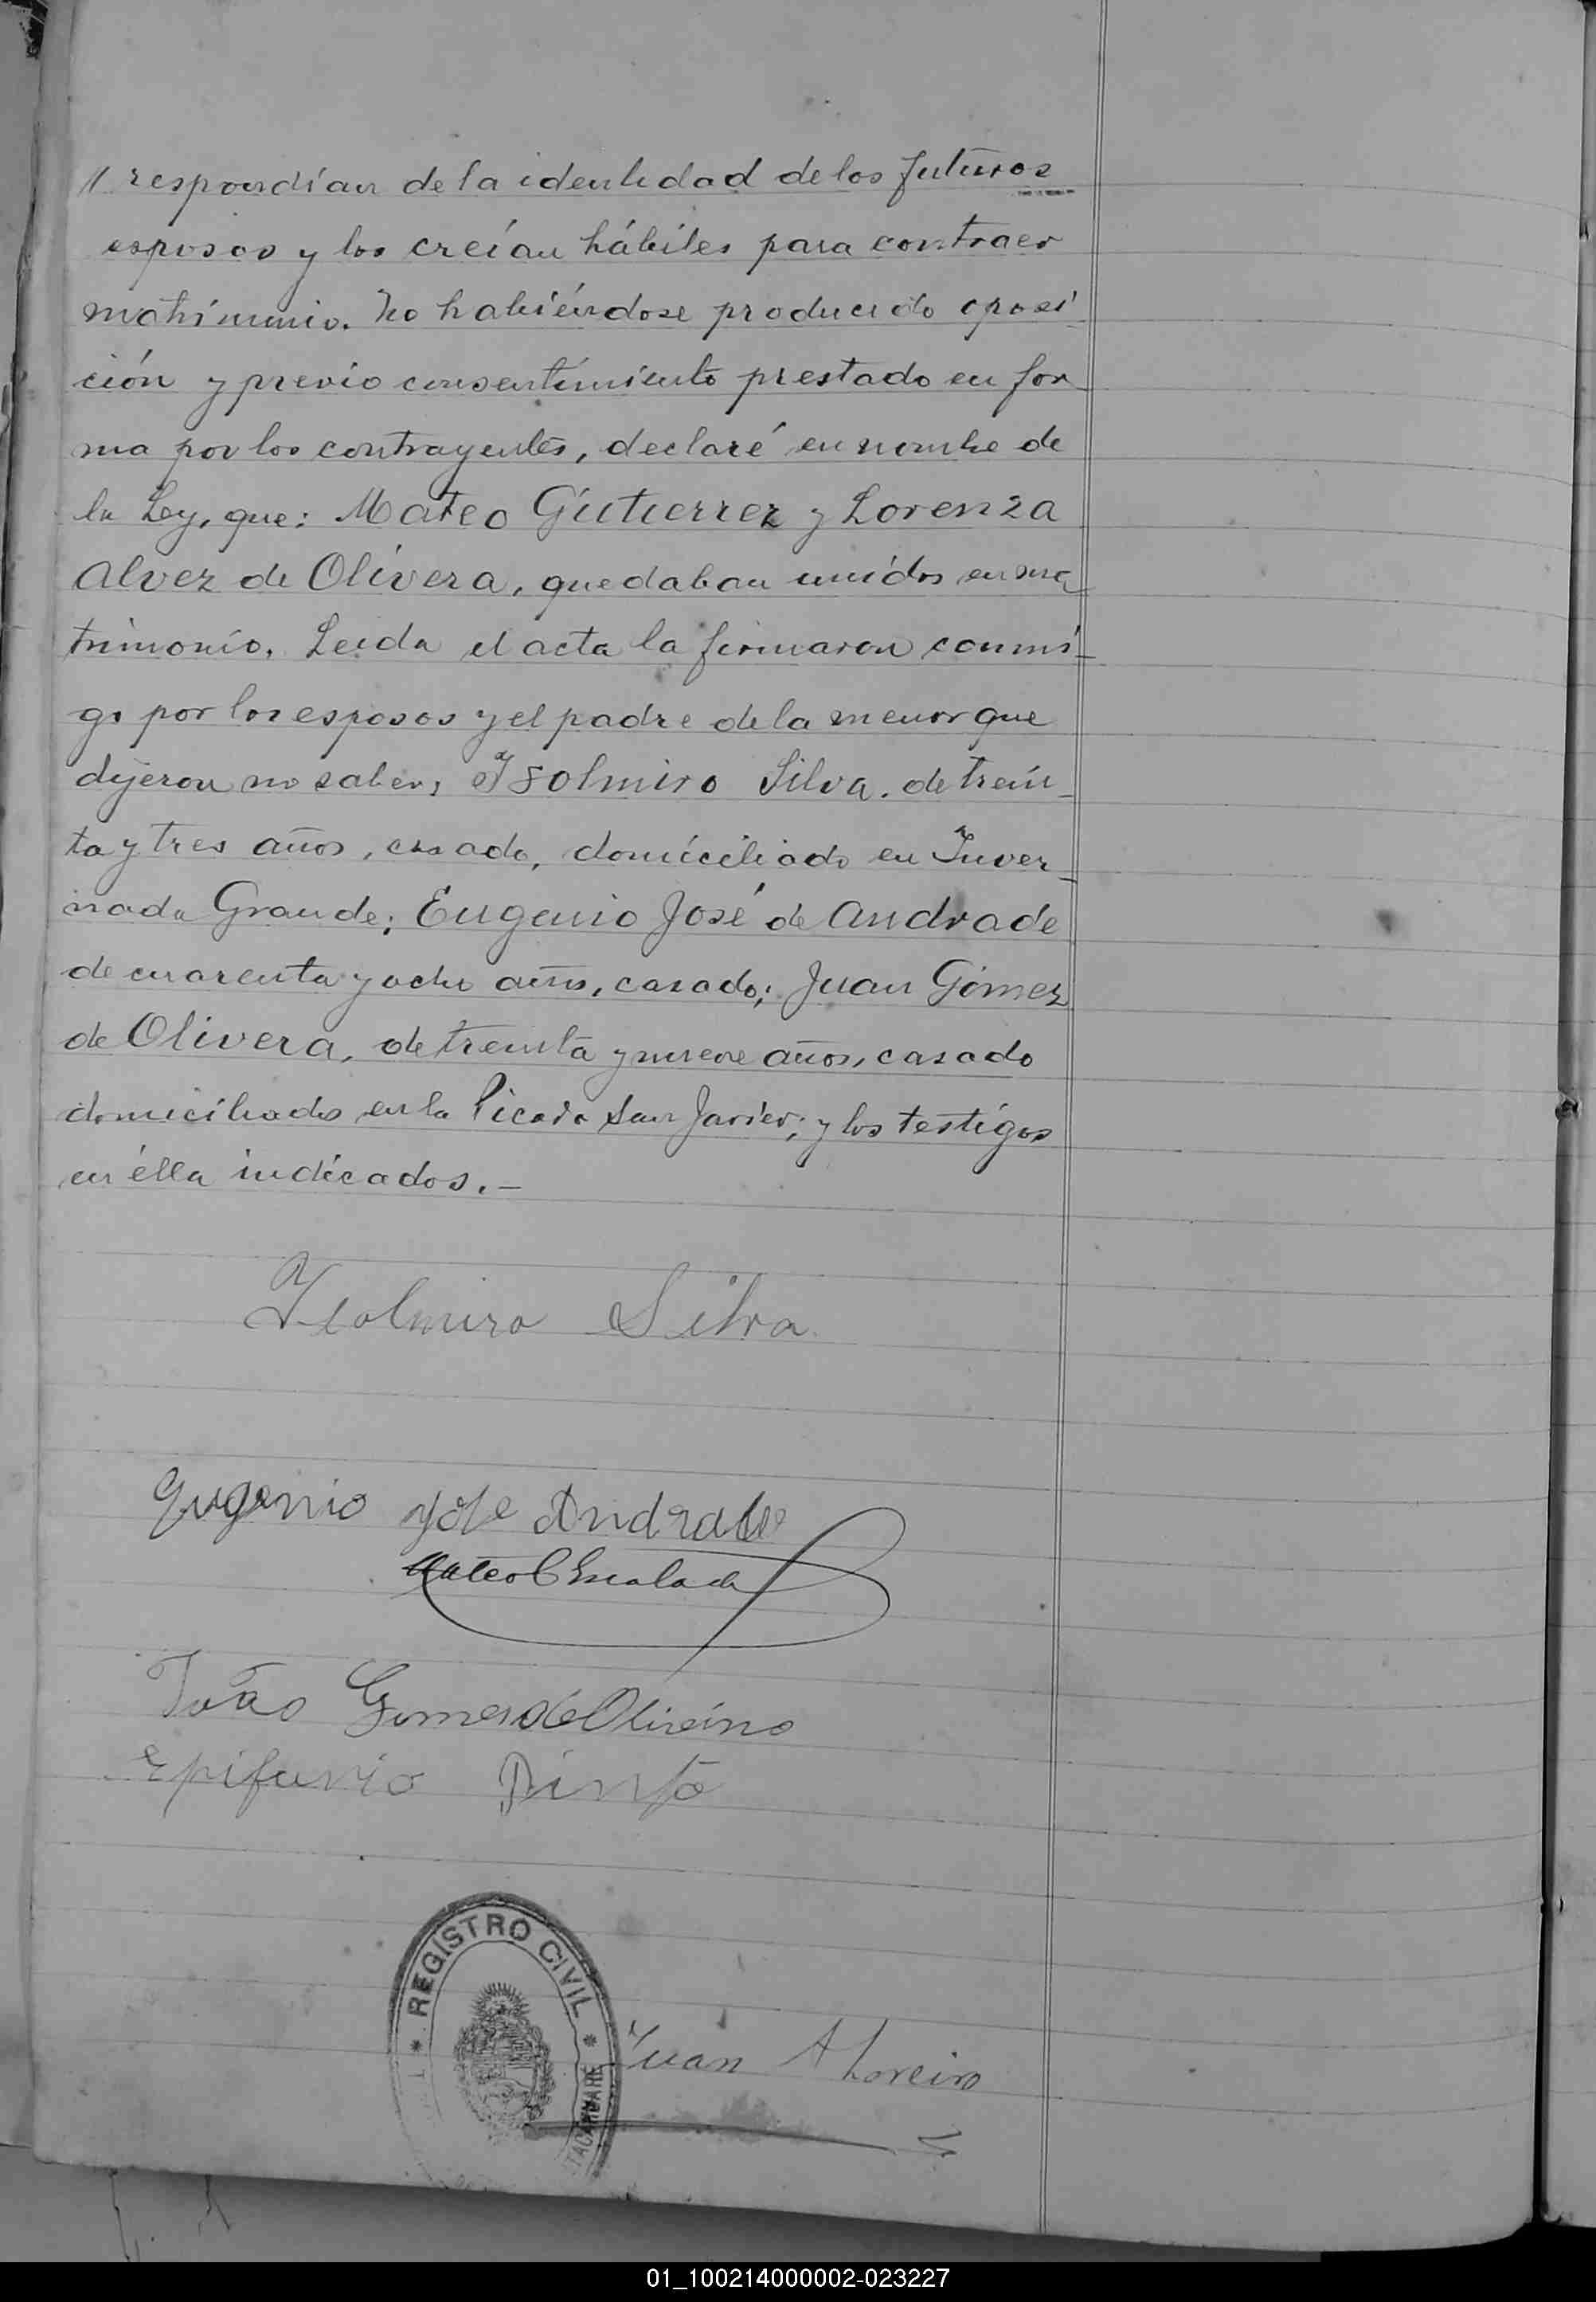 // respondían de la identidad de los futuros
esposos y los creían hábiles para contraer
matrimonio. No habiéndose producido oposi
ción y previo consentimiento prestado en for
ma por los contrayentes, declaré en nombre de
la Ley, que: Mateo Gutierrez y Lorenza
Alvez de Olivera, quedaban unidos en ma
trimonio. Leida el acta la firmaron conmi-
go por los esposos y el padre de la menor que
dijeron no saber, Isolmiro Silva. de trein-
ta y tres años, casado, domiciliado en Inver-
nada Grande; Eugenio José de Andrade
de cuarenta y ocho años, casado; Juan Gómez
de Olivera, de treinta y nueve años, casado
domiciliados en la Picada San Javier; y los testigos
en élla indicados.-
Isolmiro Silva.
Eugenio Jose Andrade
Mateo C Escalada
João Gomes de Oliveira
Epifanio Pinto
* REGISTRO CIVIL *
ITACARUARE
Juan A Loreiro
01_100214000002-023227